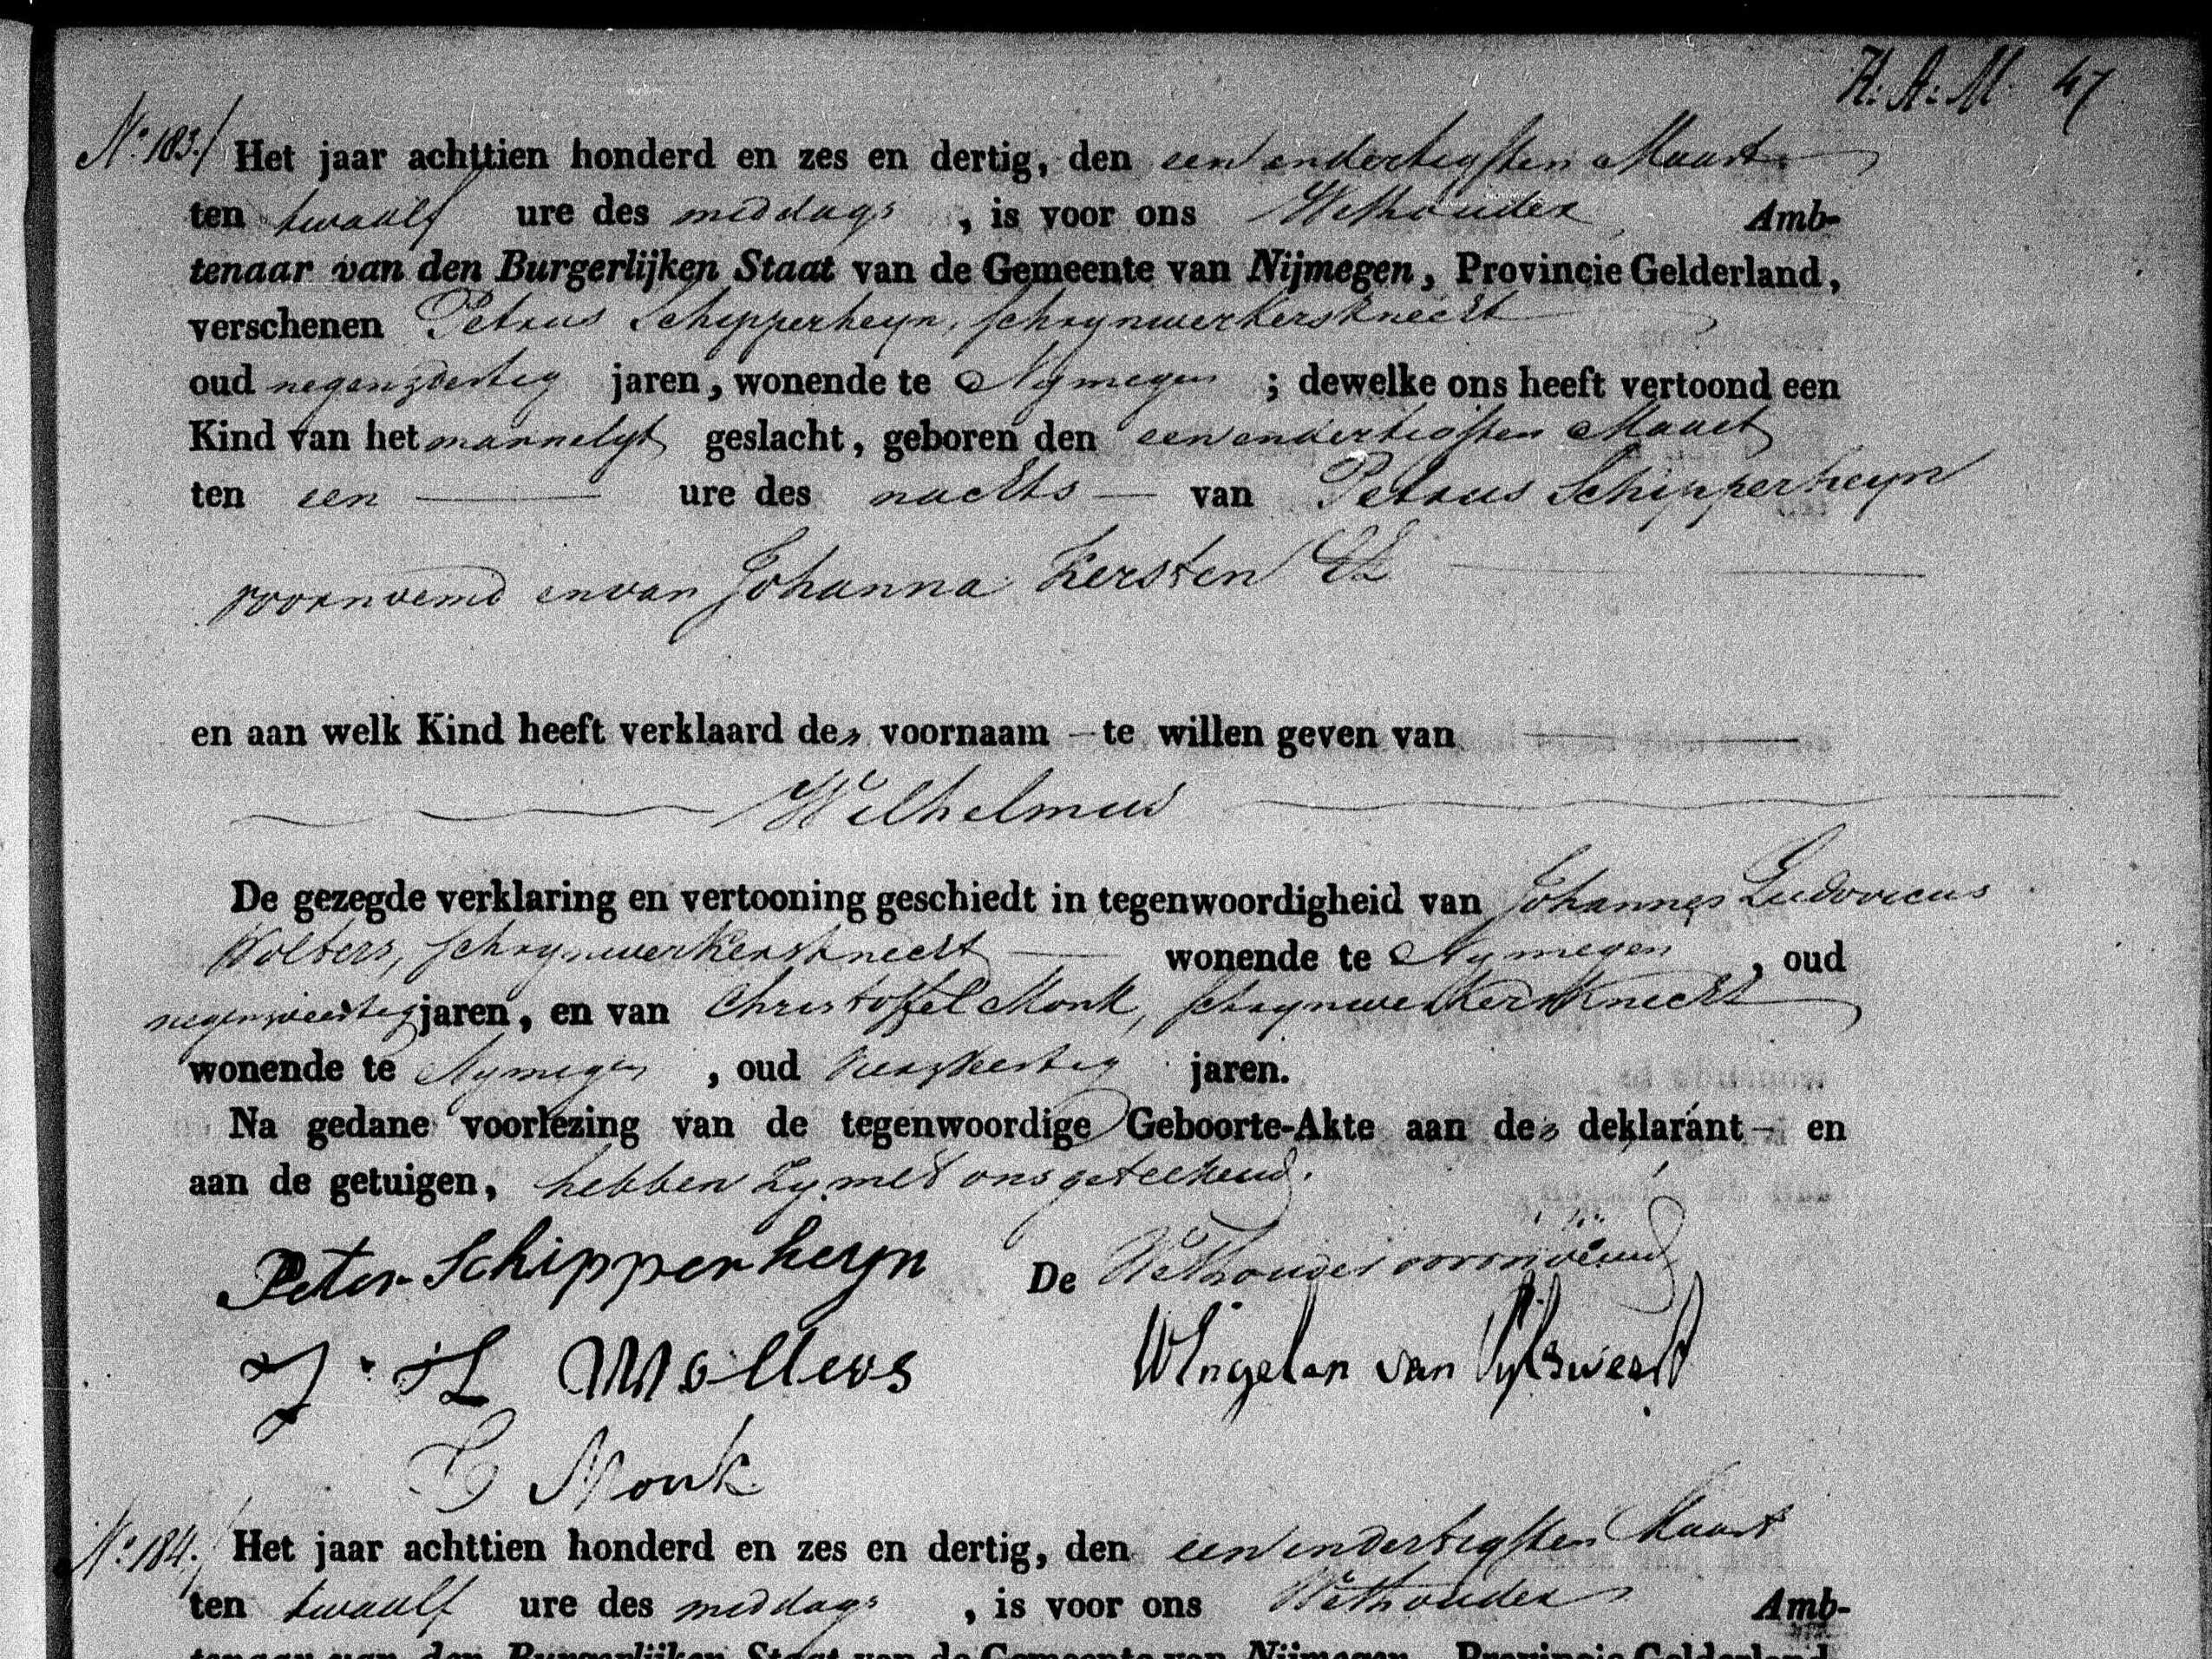 H. A. M. 47
N.º 183. Het jaar achttien honderd en zes en dertig, den een en dertigsten Maart
ten twaalf ure des middags, is voor ons Wethouder Amb-
tenaar van den Burgerlijken Staat van de Gemeente van Nijmegen, Provincie Gelderland,
verschenen Petrus Schipperheyn, schrynwerkersknecht
oud negenendertig jaren, wonende te Nymegen; dewelke ons heeft vertoond een
Kind van het mannelyk geslacht, geboren den een en dertigsten Maart
ten een ure des nachts van Petrus Schipperheyn
voornoemd en van Johanna Kersten
en aan welk Kind heeft verklaard den voornaam te willen geven van
Wilhelmus
De gezegde verklaring en vertooning geschiedt in tegenwoordigheid van Johannes Ludovicus
Wolters, schrynwerkersknecht wonende te Nymegen, oud
jaren, en van Christoffel Monk, schrynwerkersknecht
wonende te Nymegen, oud jaren.
Na gedane voorlezing van de tegenwoordige Geboorte-Akte aan den deklarant en
aan de getuigen, hebben zy met ons geteekend.
Peter Schipperheyn De Wethouder voornoemd
J. L Wolters WIngelen van
C Monk
N.º 184. Het jaar achttien honderd en zes en dertig, den een en dertigsten Maart
ten twaalf ure des middags, is voor ons Wethouder Amb-
tenaar van den Burgerlijken Staat van de Gemeente van Nijmegen, Provincie Gelderland,